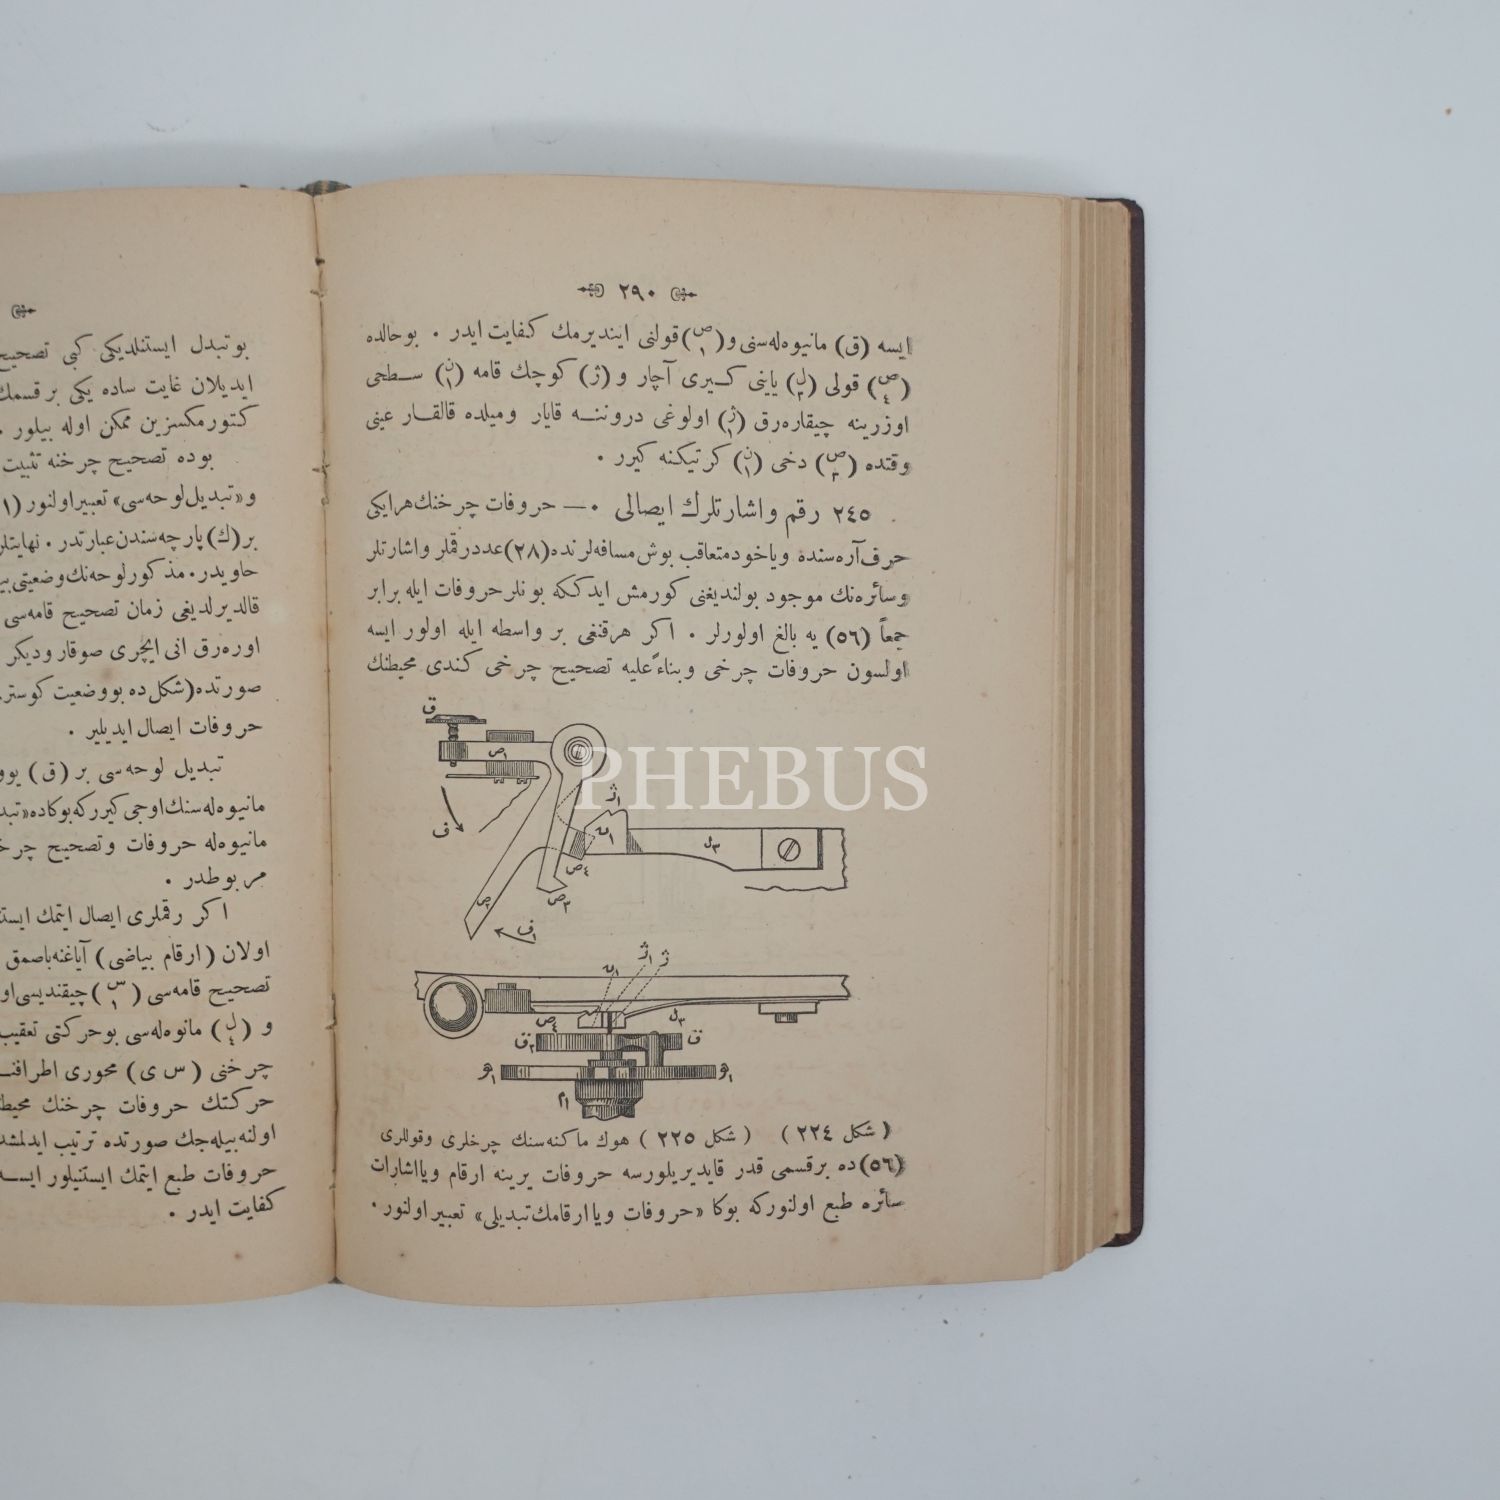 ٢٩٠
ايسه (ق) مانيوه‌له‌سنى و (ص١) قولنى اينديرمك كفايت ايدر . بوحالده
(ص٤) قولى (ل٣) يايني كيرى آچار و (ژ) كوچك قامه (ن١) سطحى
اوزرينه چيقاره‌رق (ژ١) اولوغى دروننه قايار وميلده قالقار عينى
وقتده (ص٣) دخى (ن١) كرتيكنه كيرر .
٢٤٥ رقم واشارتلرك ايصالى . — حروفات چرخنك هرايكى
حرف آره‌سنده وياخود متعاقب بوش مسافه‌لرنده (٢٨) عدد رقملر واشارتلر
وسائره‌نك موجود بولنديغنى كورمش ايدككه بونلر حروفات ايله برابر
جمعاً (٥٦) يه بالغ اولورلر . اكر هرقنغى بر واسطه ايله اولور ايسه
اولسون حروفات چرخى وبناءً عليه تصحيح چرخى كندى محيطنك
ق
ص١
ف
ژ١
ن١
ل٣
ص٤
ص٣
ص٢
ف١
ن١
ژ١
ژ
ص٤
ل٣
ق٢
ق
و١
و١
م١
(شكل ٢٢٤) (شكل ٢٢٥) هوك ماكنه‌سنك چرخلرى وقوللرى
(٥٦) ده برقسمى قدر قايديريلورسه حروفات يرينه ارقام ويااشارات
سائره طبع اولنوركه بوكا «حروفات وياارقامك تبديلى» تعبير اولنور .
بوتبدل ايستنلديكى كبى تصحيح
ايديلان غايت ساده يكى بر قسمك
كتورمكسزين ممكن اوله بيلور .
بوده تصحيح چرخنه تثبيت
و «تبديل لوحه‌سى» تعبير اولنور (١
بر (ك) پارچه‌سندن عبارتدر . نهايتلر
حاويدر . مذكور لوحه‌نك وضعيتى
قالديرلديغى زمان تصحيح قامه‌سى
اوره‌رق انى ايچرى صوقار وديكر
صورتده (شكل ده بووضعيت كوستر
حروفات ايصال ايديلير .
تبديل لوحه‌سى بر (ق)
مانيوه‌له‌سنك اوجى كيرركه بوكاده «تبد
مانيوه‌له حروفات وتصحيح چر
مربوطدر .
اكر رقملرى ايصال ايتمك ايست
اولان (ارقام بياضى) آياغنه باصمق
تصحيح قامه‌سى (س١) چيقنديسى
و (ل٤) مانوه‌له‌سى بوحركتى تعقيب
چرخنى (س ى) محورى اطرافنـ
حركتك حروفات چرخنك محيط
اولنه‌بيله‌جك صورتده ترتيب ايدلمشد
حروفات طبع ايتمك ايستنيلور ايسه
كفايت ايدر .
PHEBUS